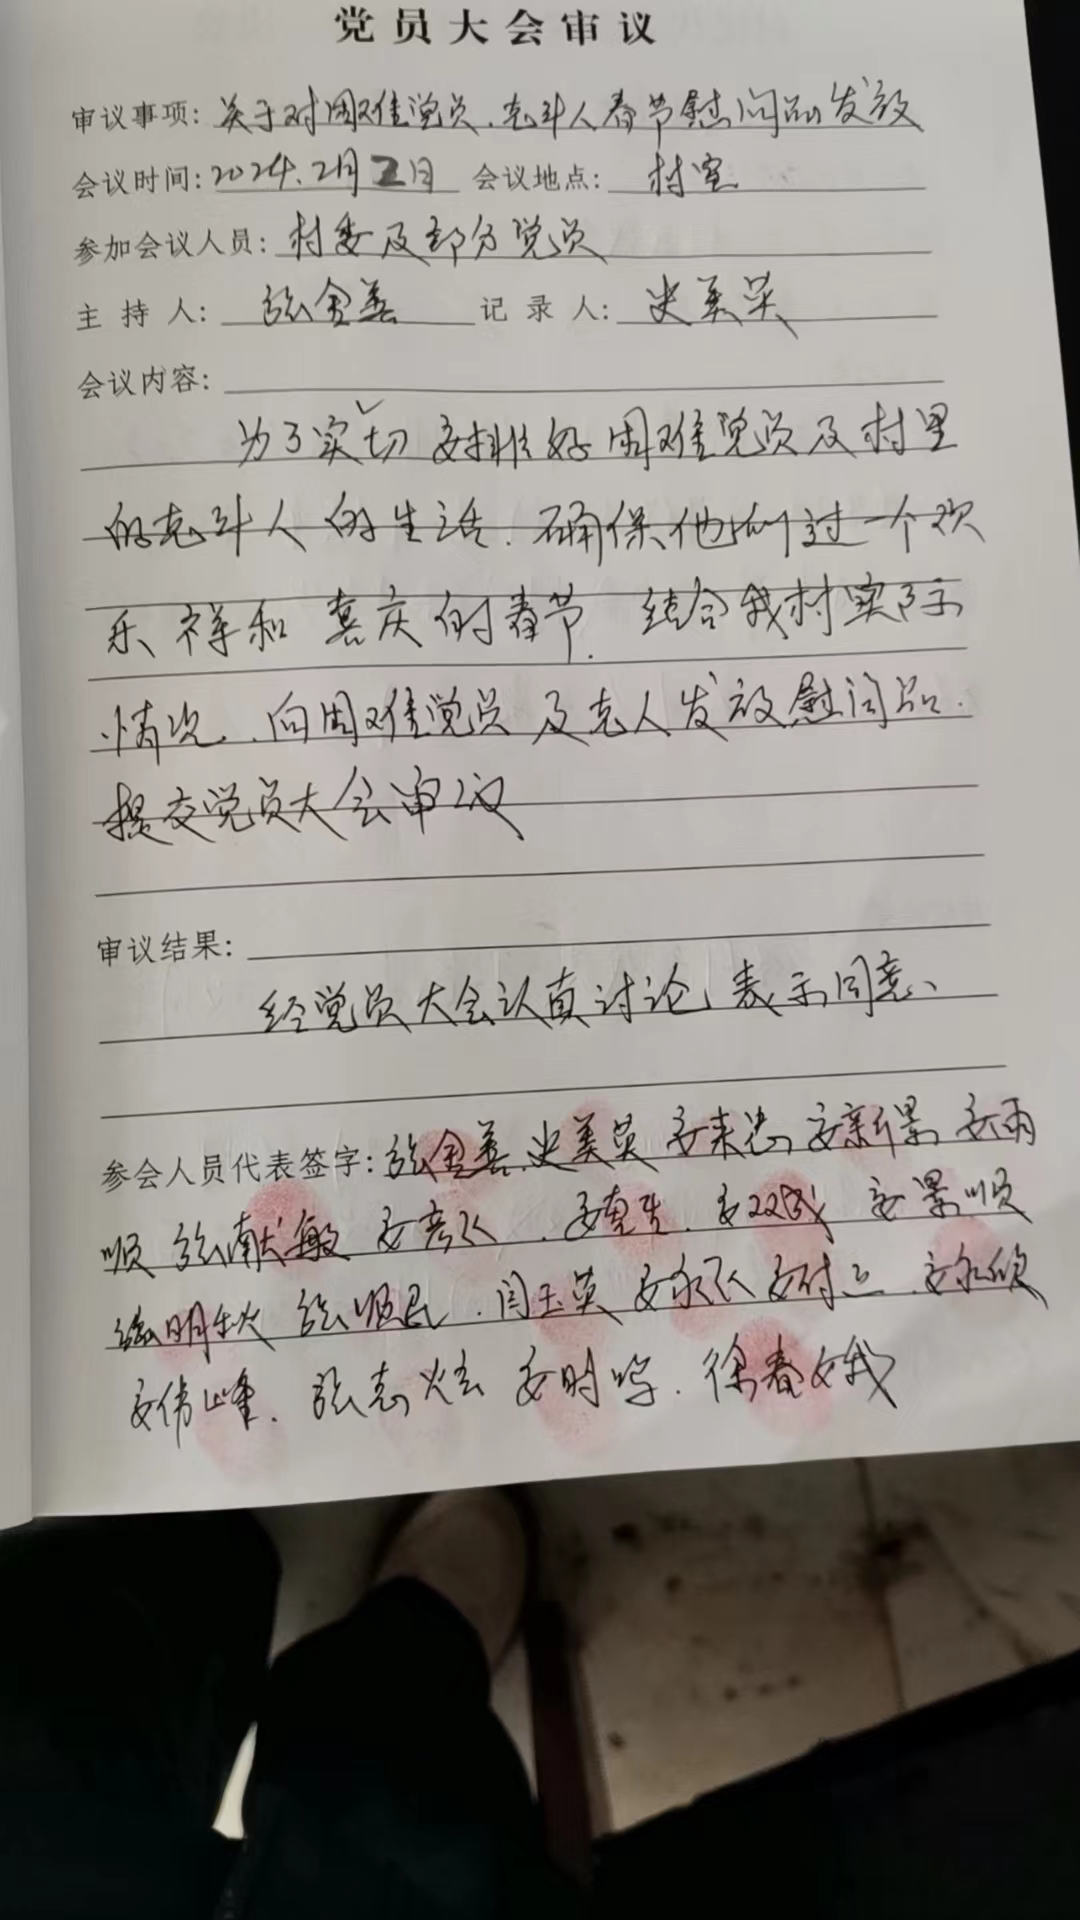 党员大会审议
审议事项: 关于对困难党员、老年人春节慰问品发放
会议时间: 2024.2月2日 会议地点: 村室
参加会议人员: 村委及部分党员
主持人: 张金善 记录人: 史美英
会议内容:
为了实切安排好困难党员及村里
的老年人的生活.确保他们过一个欢
乐祥和喜庆的春节.结合我村实际
情况.向困难党员及老人发放慰问品.
提交党员大会审议
审议结果:
经党员大会认真讨论,表示同意、
参会人员代表签字: 张金善.史美英 安来忠 安新景 安雨
顺 张献敏 安彦 .安重生.安双成 安景顺
张明秋 张顺民.闫玉英 安永 安付 .安永欣
安伟峰.张志炫 安时 .徐春娥